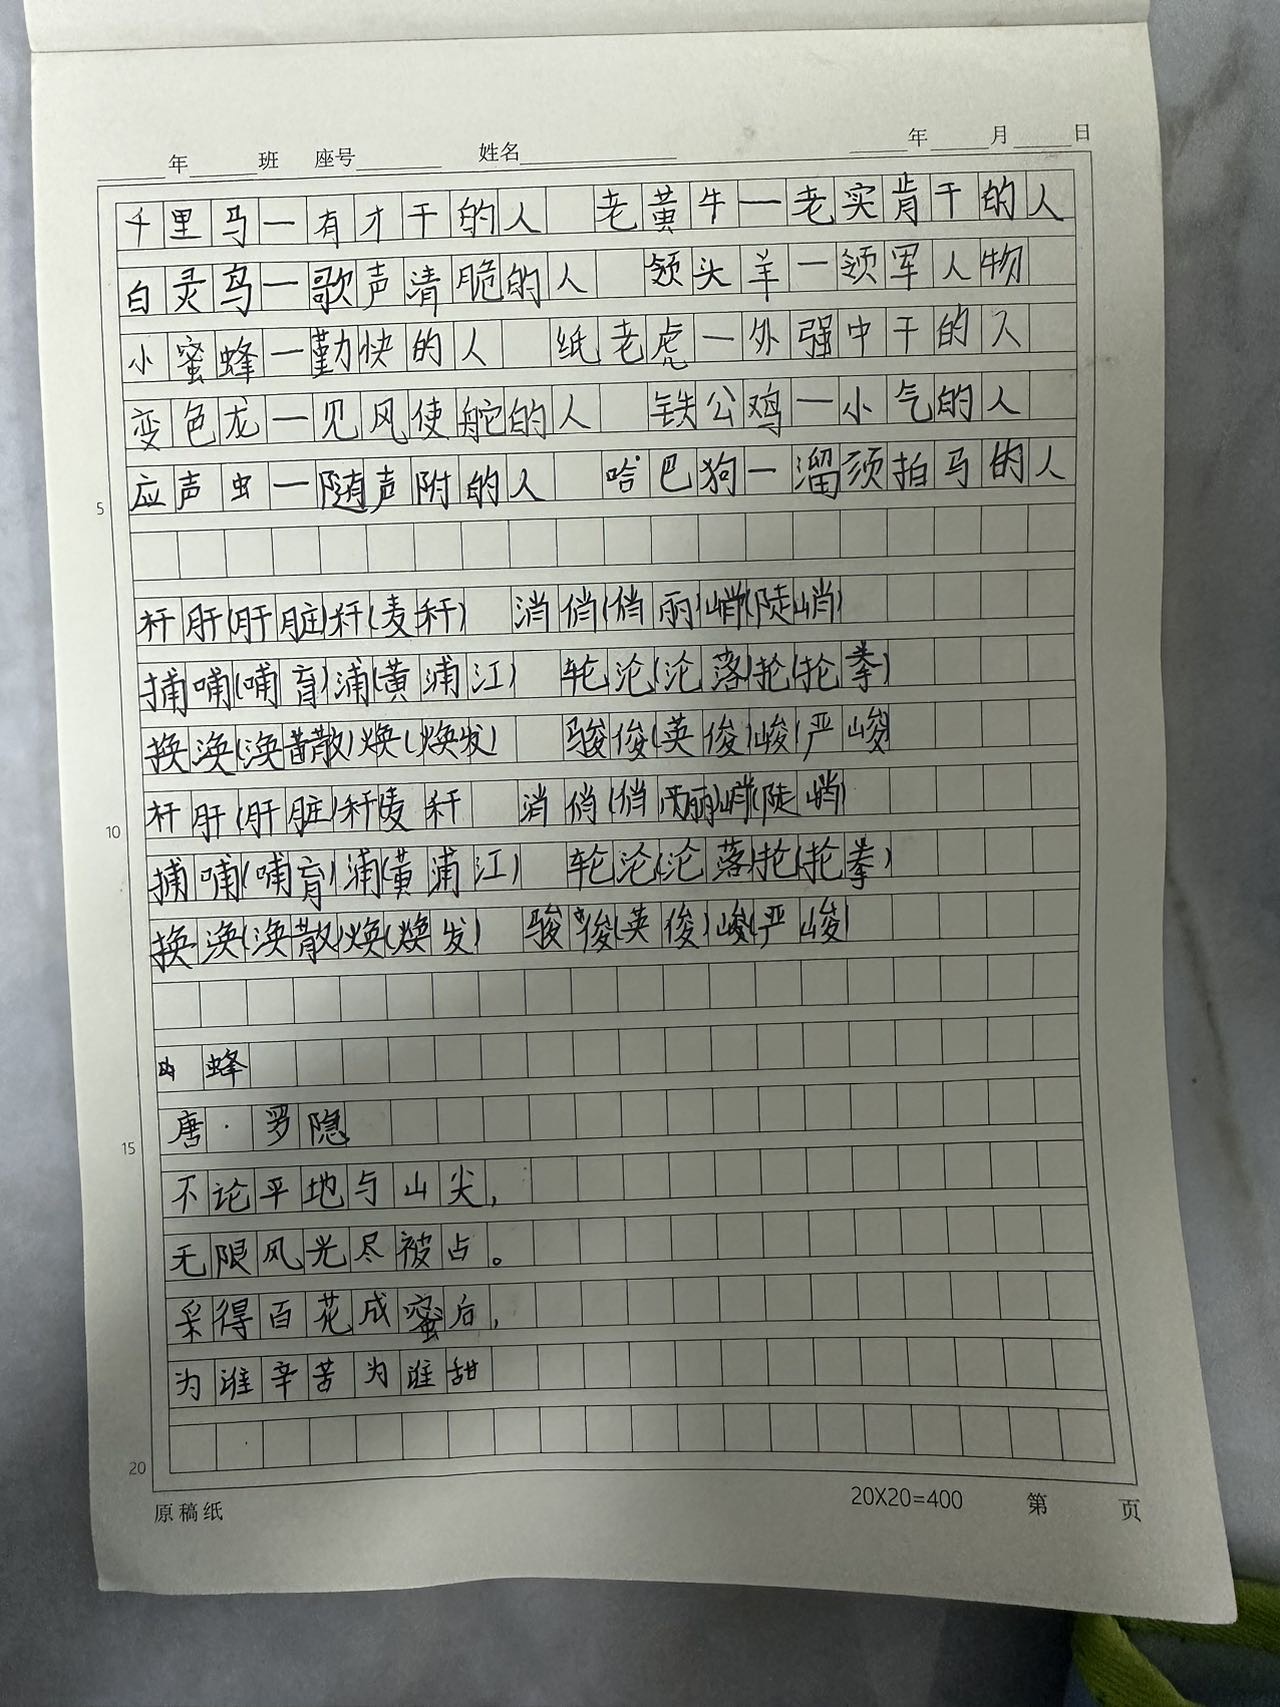 年 班 座号 姓名 年 月 日
千里马一有才干的人 老黄牛一老实肯干的人
白灵鸟一歌声清脆的人 领头羊一领军人物
小蜜蜂一勤快的人 纸老虎一外强中干的人
变色龙一见风使舵的人 铁公鸡一小气的人
应声虫一随声附的人 哈巴狗一溜须拍马的人
5
杆肝(肝脏)秆(麦秆) 消俏(俏丽)峭(陡峭)
捕哺(哺育)浦(黄浦江) 轮沦(沦落)抡(抡拳)
换涣(涣散)焕(焕发) 骏俊(英俊)峻(严峻)
杆肝(肝脏)秆(麦秆 消俏(俏丽)峭(陡峭)
10
捕哺(哺育)浦(黄浦江) 轮沦(沦落)抡(抡拳)
换涣(涣散)焕(焕发) 骏俊(英俊)峻(严峻)
蜂
唐·罗隐
15
不论平地与山尖，
无限风光尽被占。
采得百花成蜜后，
为谁辛苦为谁甜
20
原稿纸 20X20=400 第 页